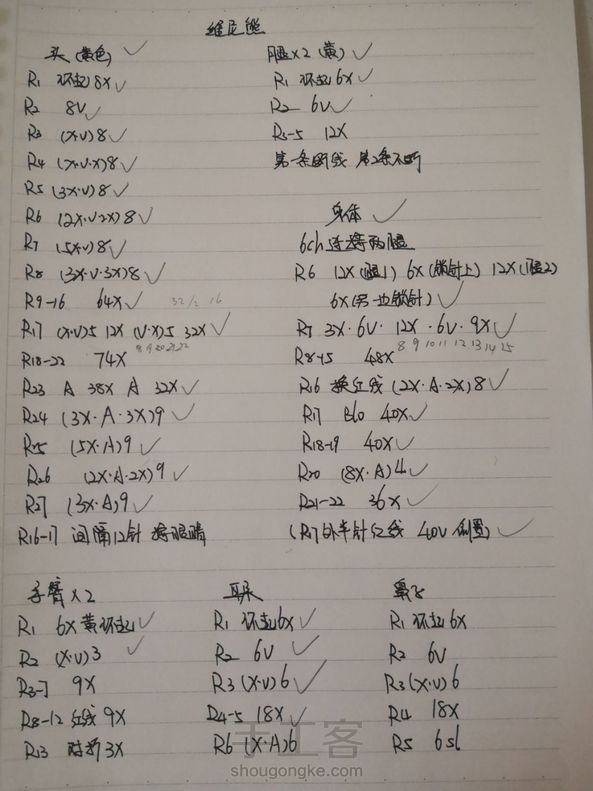 维尼熊
头 (黄色) ✓
R1 环起8X ✓
R2 8V ✓
R3 (X·V)8 ✓
R4 (X·V·X)8 ✓
R5 (3X·V)8 ✓
R6 (2X·V·2X)8 ✓
R7 (5X·V)8 ✓
R8 (3X·V·3X)8 ✓
R9-16 64X ✓
R17 (X·V)5 12X (V·X)5 32X ✓
R18-22 74X
R23 A 38X A 32X ✓
R24 (3X·A·3X)9 ✓
R25 (5X·A)9 ✓
R26 (2X·A·2X)9 ✓
R27 (3X·A)9 ✓
R16-17 间隔12针 接眼睛
腿X2 (黄) ✓
R1 环起6X ✓
R2 6V ✓
R3-5 12X
第一条断线 第2条不断
身体 ✓
6ch连接两腿
R6 12X(腿1) 6X(锁针上) 12X(腿2)
6X(另一边锁针) ✓
R7 3X·6V·12X·6V·9X ✓
8 9 10 11 12 13 14 15
R8-15 48X
R16 换红线 (2X·A·2X)8 ✓
R17 blo 40X ✓
R18-19 40X ✓
R20 (8X·A)4 ✓
R21-22 36X ✓
(R17外半针红线 40V 1圈) ✓
手臂X2
R1 6X黄环起 ✓
R2 (X·V)3 ✓
R3-7 9X
R8-12 红线 9X
R13 对折3X
耳朵
R1 环起6X ✓
R2 6V ✓
R3 (X·V)6 ✓
R4-5 18X ✓
R6 (X·A)6
鼻子
R1 环起6X
R2 6V
R3 (X·V)6
R4 18X
R5 6sl
手工客
shougongke.com